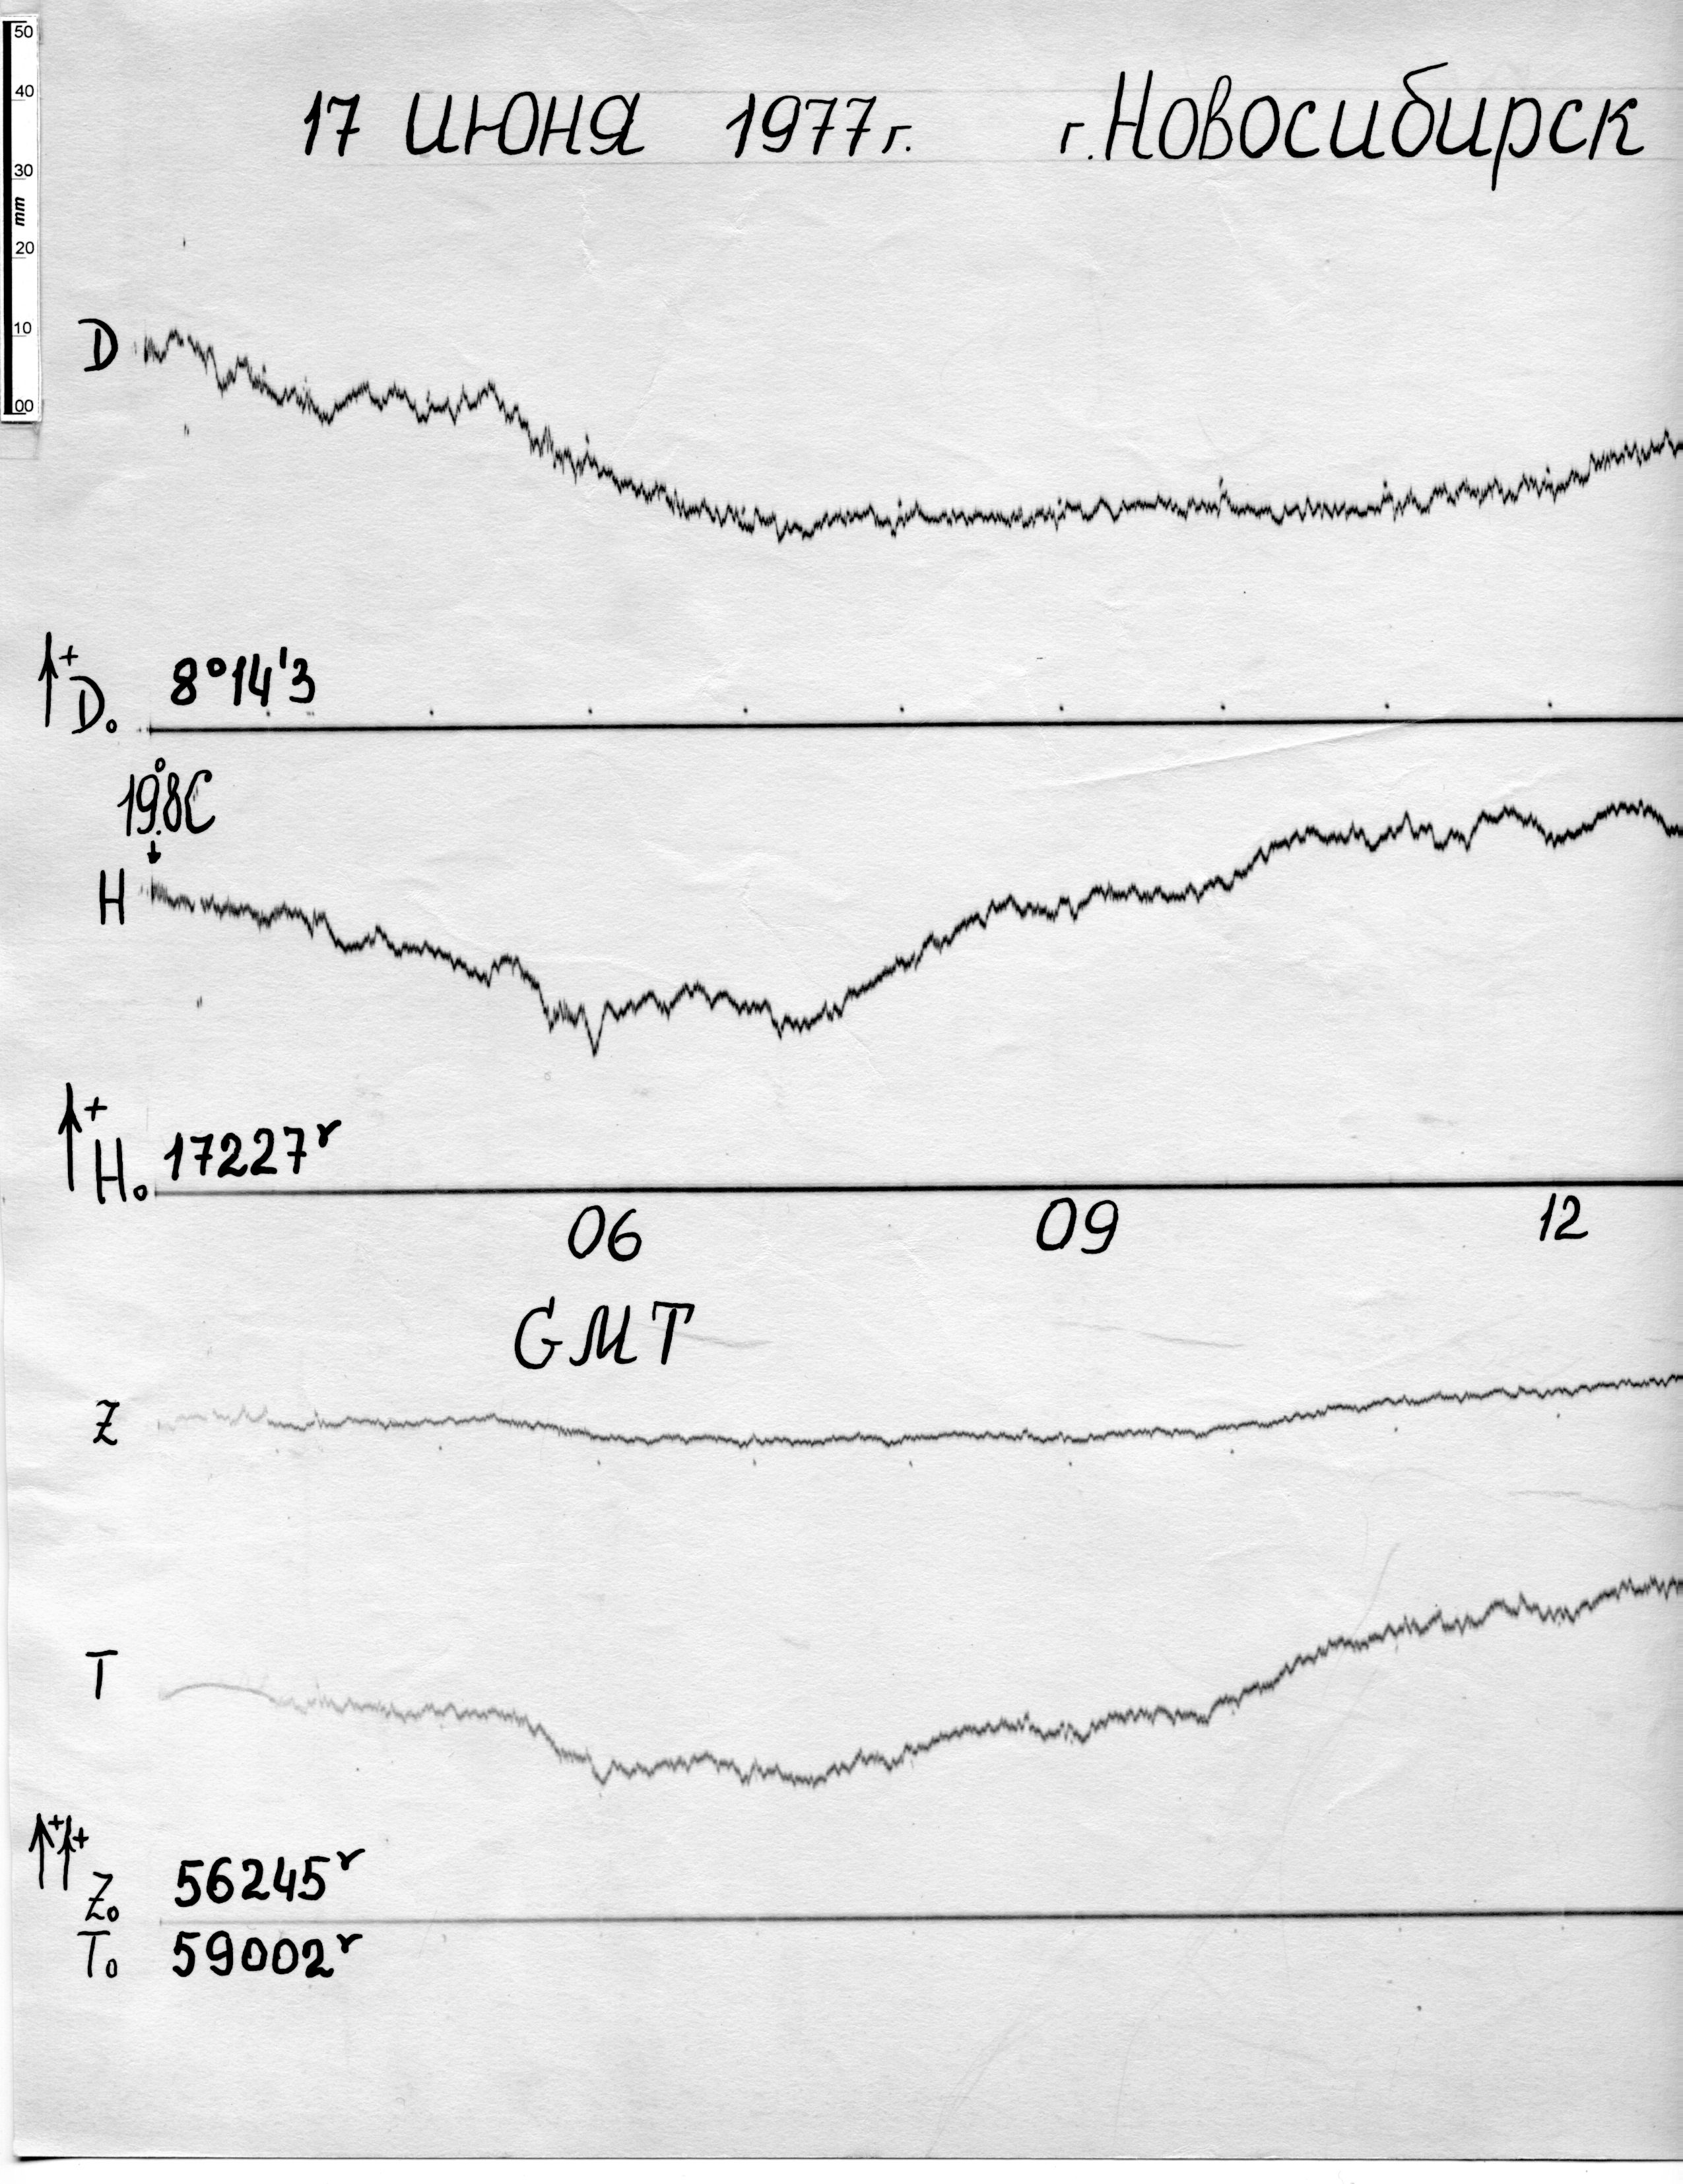 50
40
30
mm
20
10
00
17 июня 1977г. г.Новосибирск
D
+
D₀ 8°14'3
19.8°C
H
+
H₀ 17227γ
06 09 12
GMT
Z
T
+ +
Z₀ 56245γ
T₀ 59002γ